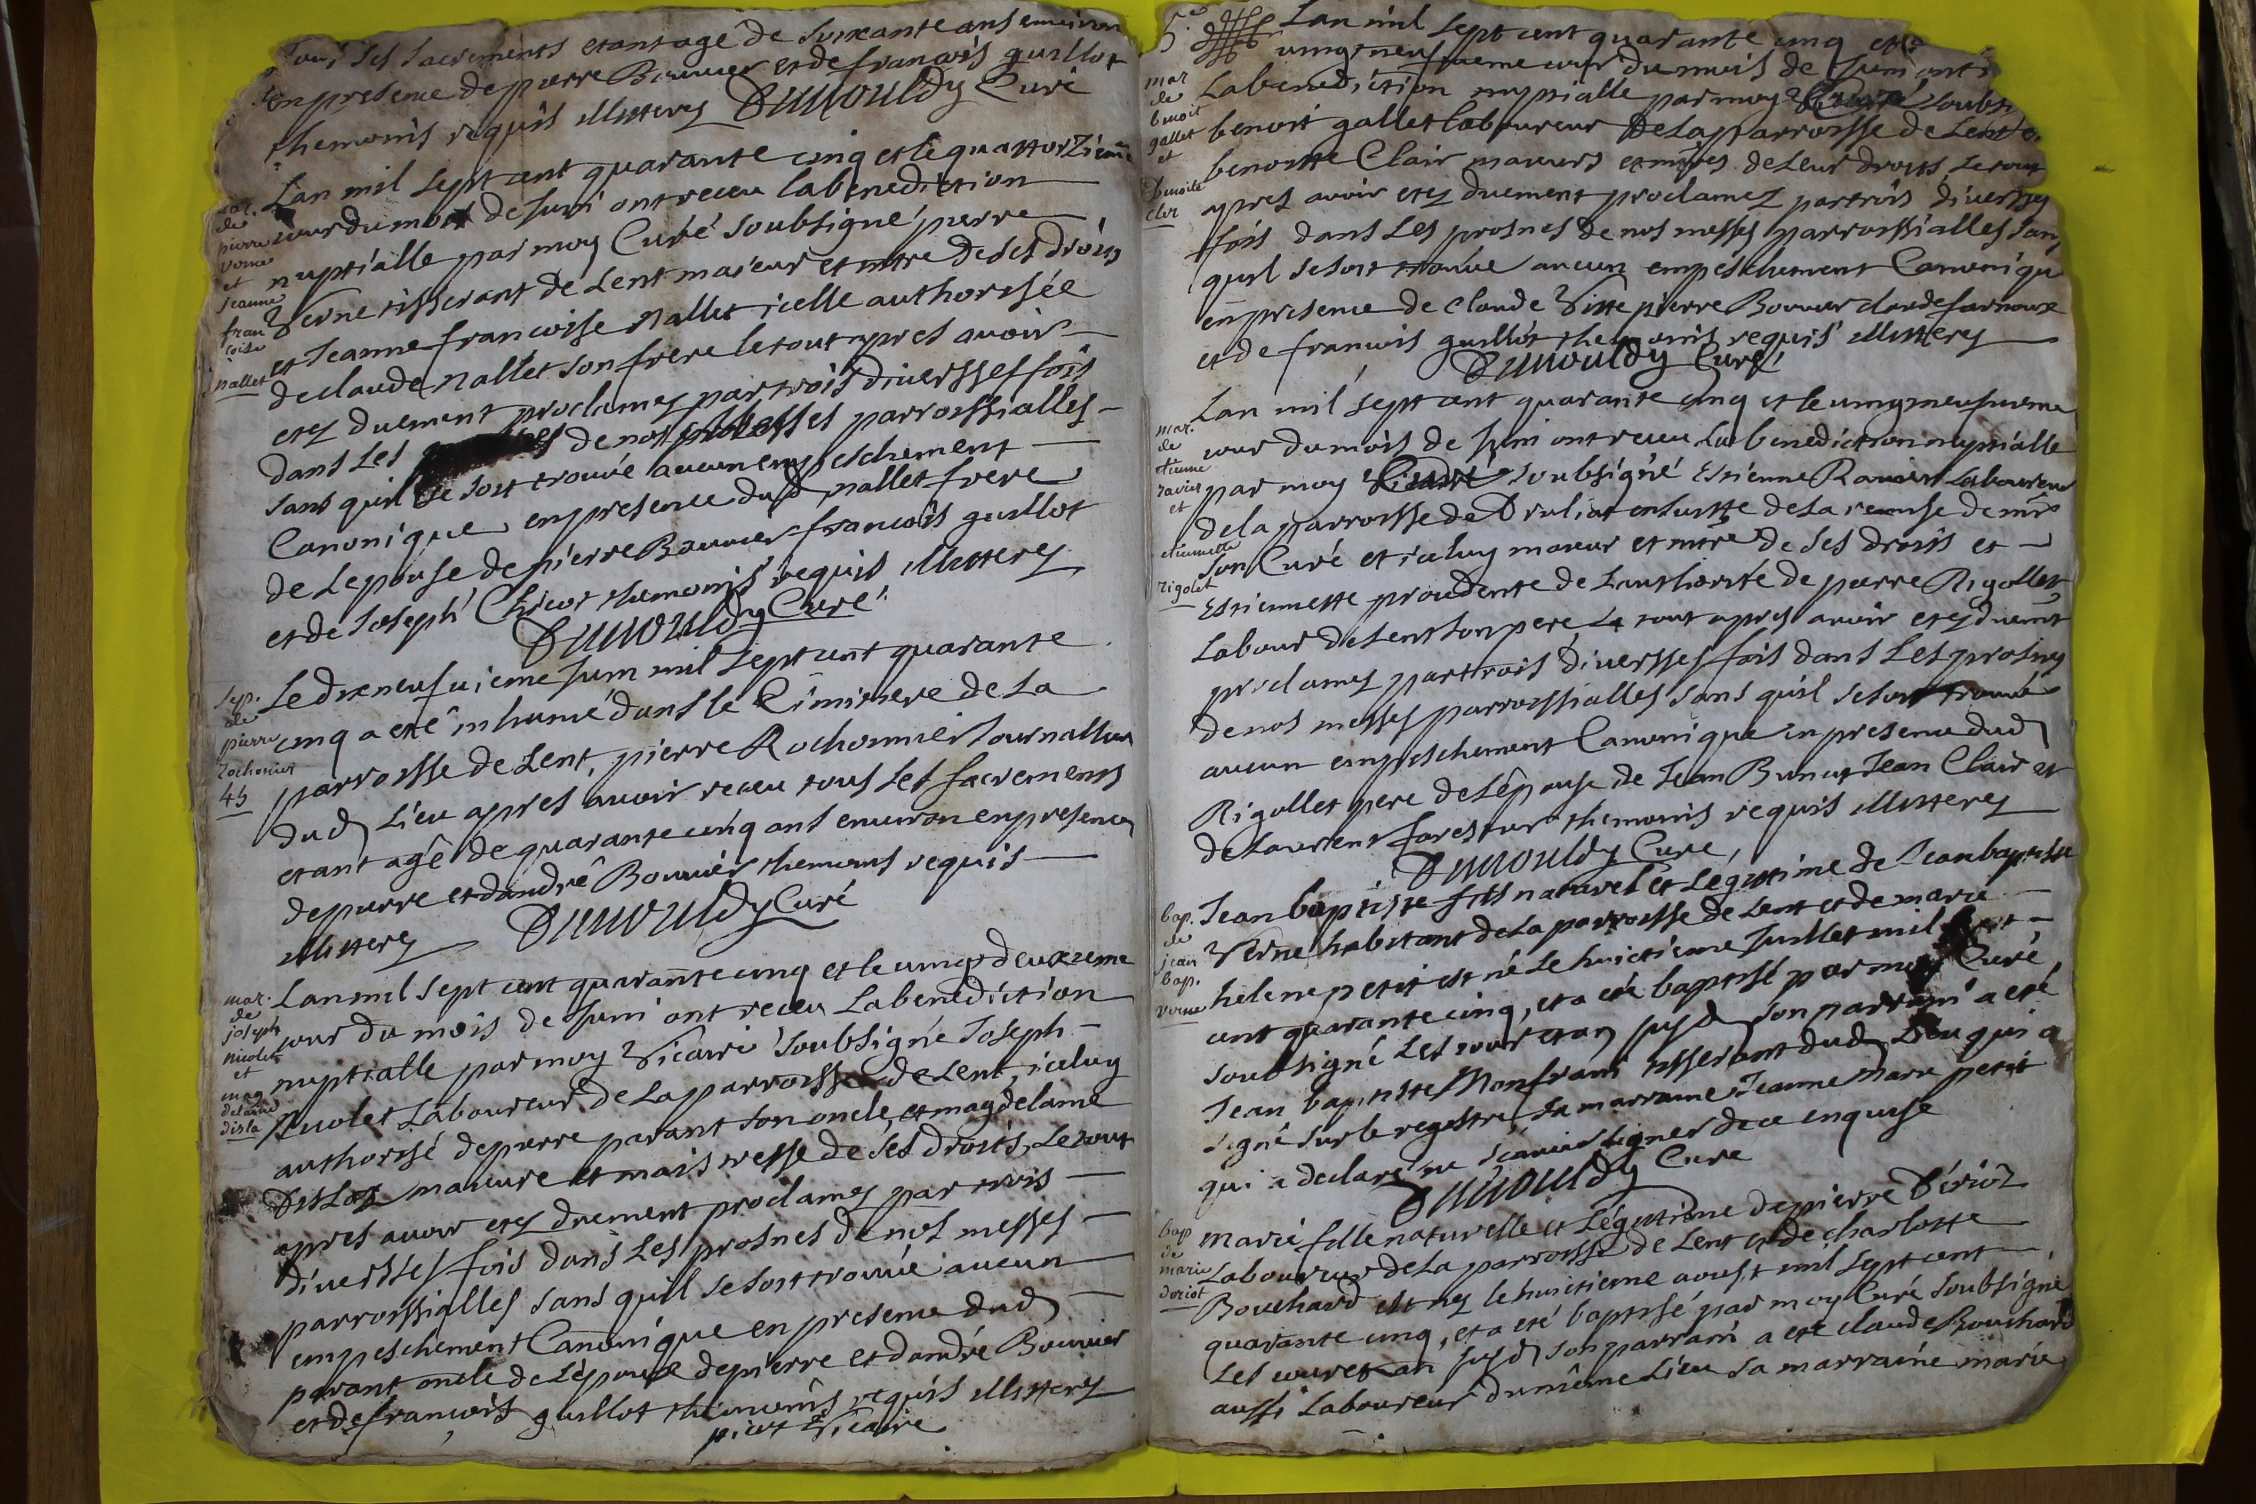 tous ses sacrements etant agé de soixante ans environ
en presence de pierre Bouvier et de francois guillot
themoins requis illitterez Dumouldy Curé
mar.
de
pierre
verne
et
jeanne
fran
coise
nallet
Lan mil sept cent quarante cinq et le quattorzieme
jour du mois de Juin ont receu la benediction
nuptialle par moy Curé soubsigné pierre
Verne tisserant de Lent majeur et mtre de ses droits
et Jeanne francoisse Nallet icelle authorisée
de claude Nallet son frere le tout apres avoir
etez duement proclamez par trois diversses fois
dans Les de nos messes parroissialles
sans quil se soit trouvé aucun empeschement
Canonique en presence dud nallet frere
de Lepouse de pierre Bouvier francois guillot
et de Joseph themoins requis illitterez
Dumouldy Curé
sep.
de
pierre
rochonier
45
Le dixneufuieme Juin mil sept cent quarante
cinq a eté inhumé dans le Cimitiere de La
parroisse de Lent, pierre Rochonnier Journallier
dud Lieu apres avoir receu tous Les sacrements
etant agé de quarante cinq ans environ en presence
de pierre et dandré Bouvier themoins requis
illitterez Dumouldy Curé
mar.
de
joseph
nuolet
et
mag
delaine
disla
Lan mil sept cent quarante cinq et le vingt deuxieme
jour du mois de Juin ont receu La benediction
nuptialle par moy Vicaire soubsigné Joseph
Nuolet Laboureur de La parroisse de Lent, iceluy
authorisé de pierre parant son oncle, et magdelaine
Disla majeure et maistresse de ses droits, Le tout
apres avoir etez duement proclamez par trois
diversses fois dans Les prosnes de nos messes
parroissialles sans quil se soit trouvé aucun
empeschement Canonique en presence dud
parant oncle de Lépouse de pierre et dandré Bouvier
et de francois guillot themoins requis illitterez
picot Vicaire
5e
mar
de
benoit
gallet
et
benoite
cler
Lan mil sept cent quarante cinq et
vingt neufuieme jour du mois de Juin ont
La benediction nuptialle par moy soubsi
benoit gallet laboureur de La parroisse de Lent
benoitte Clair majeurs et mtres de Leur droits Le tout
apres avoir etez duement proclamez par trois diversses
fois dans Les prosnes de nos messes parroissialles sans
quil se soit trouvé aucun empeschement Canonique
en presence de claude Vitte pierre Bouvier claude farnoux
et de francois guillot themoins requis illitterez
Dumouldy Curé
mar.
de
etienne
ravier
et
etiennette
rigolet
Lan mil sept cent quarante cinq et le vingtneufuieme
jour du mois de Juin ont receu La benediction nuptialle
par moy soubsigné Estienne Ravier Laboureur
de la parroisse de Druliat ensuitte de La remise de mr
son Curé et iceluy majeur et mtre de ses droits et
Estiennette proudente de Lauthorité de pierre Rigollet
Labour de Lent son pere Le tout apres avoir etez duemt
proclamez par trois diversses fois dans Les prosnes
de nos messes parroissialles sans quil se soit trouvé
aucun empeschement Canonique en presence dud
Rigollet pere de Lépouse de Jean Jean Clair et
de Laurent forestier themoins requis illitterez
Dumouldy Curé
bap.
de
jean
bap.
verne
Jean baptiste fils naturel et Légittime de Jean baptiste
Verne habitant de La parroisse de Lent et de marie
helene petit est né Le huictieme Juillet mil sept
cent quarante cinq, et a eté baptisé par moy Curé
soubsigné Les jour et an susd son parrain a eté
Jean baptiste Monfrani tisserant dud Lieu qui a
signé sur le registre, sa marraine Jeanne Marie petit
qui a declaré ne scavoir signer de ce enquise
Dumouldy Curé
bap
de
marie
doriot
Marie fille naturelle et Légittime de pierre Dériot
Laboureur de La parroisse de Lent et de charlotte
Bouchard est ney le huictieme aoust mil sept cent
quarante cinq, et a eté baptisé par moy Curé soubsigné
Les jour et an susd son parrain a eté claude Bouchard
aussi Laboureur du même Lieu sa marraine marie